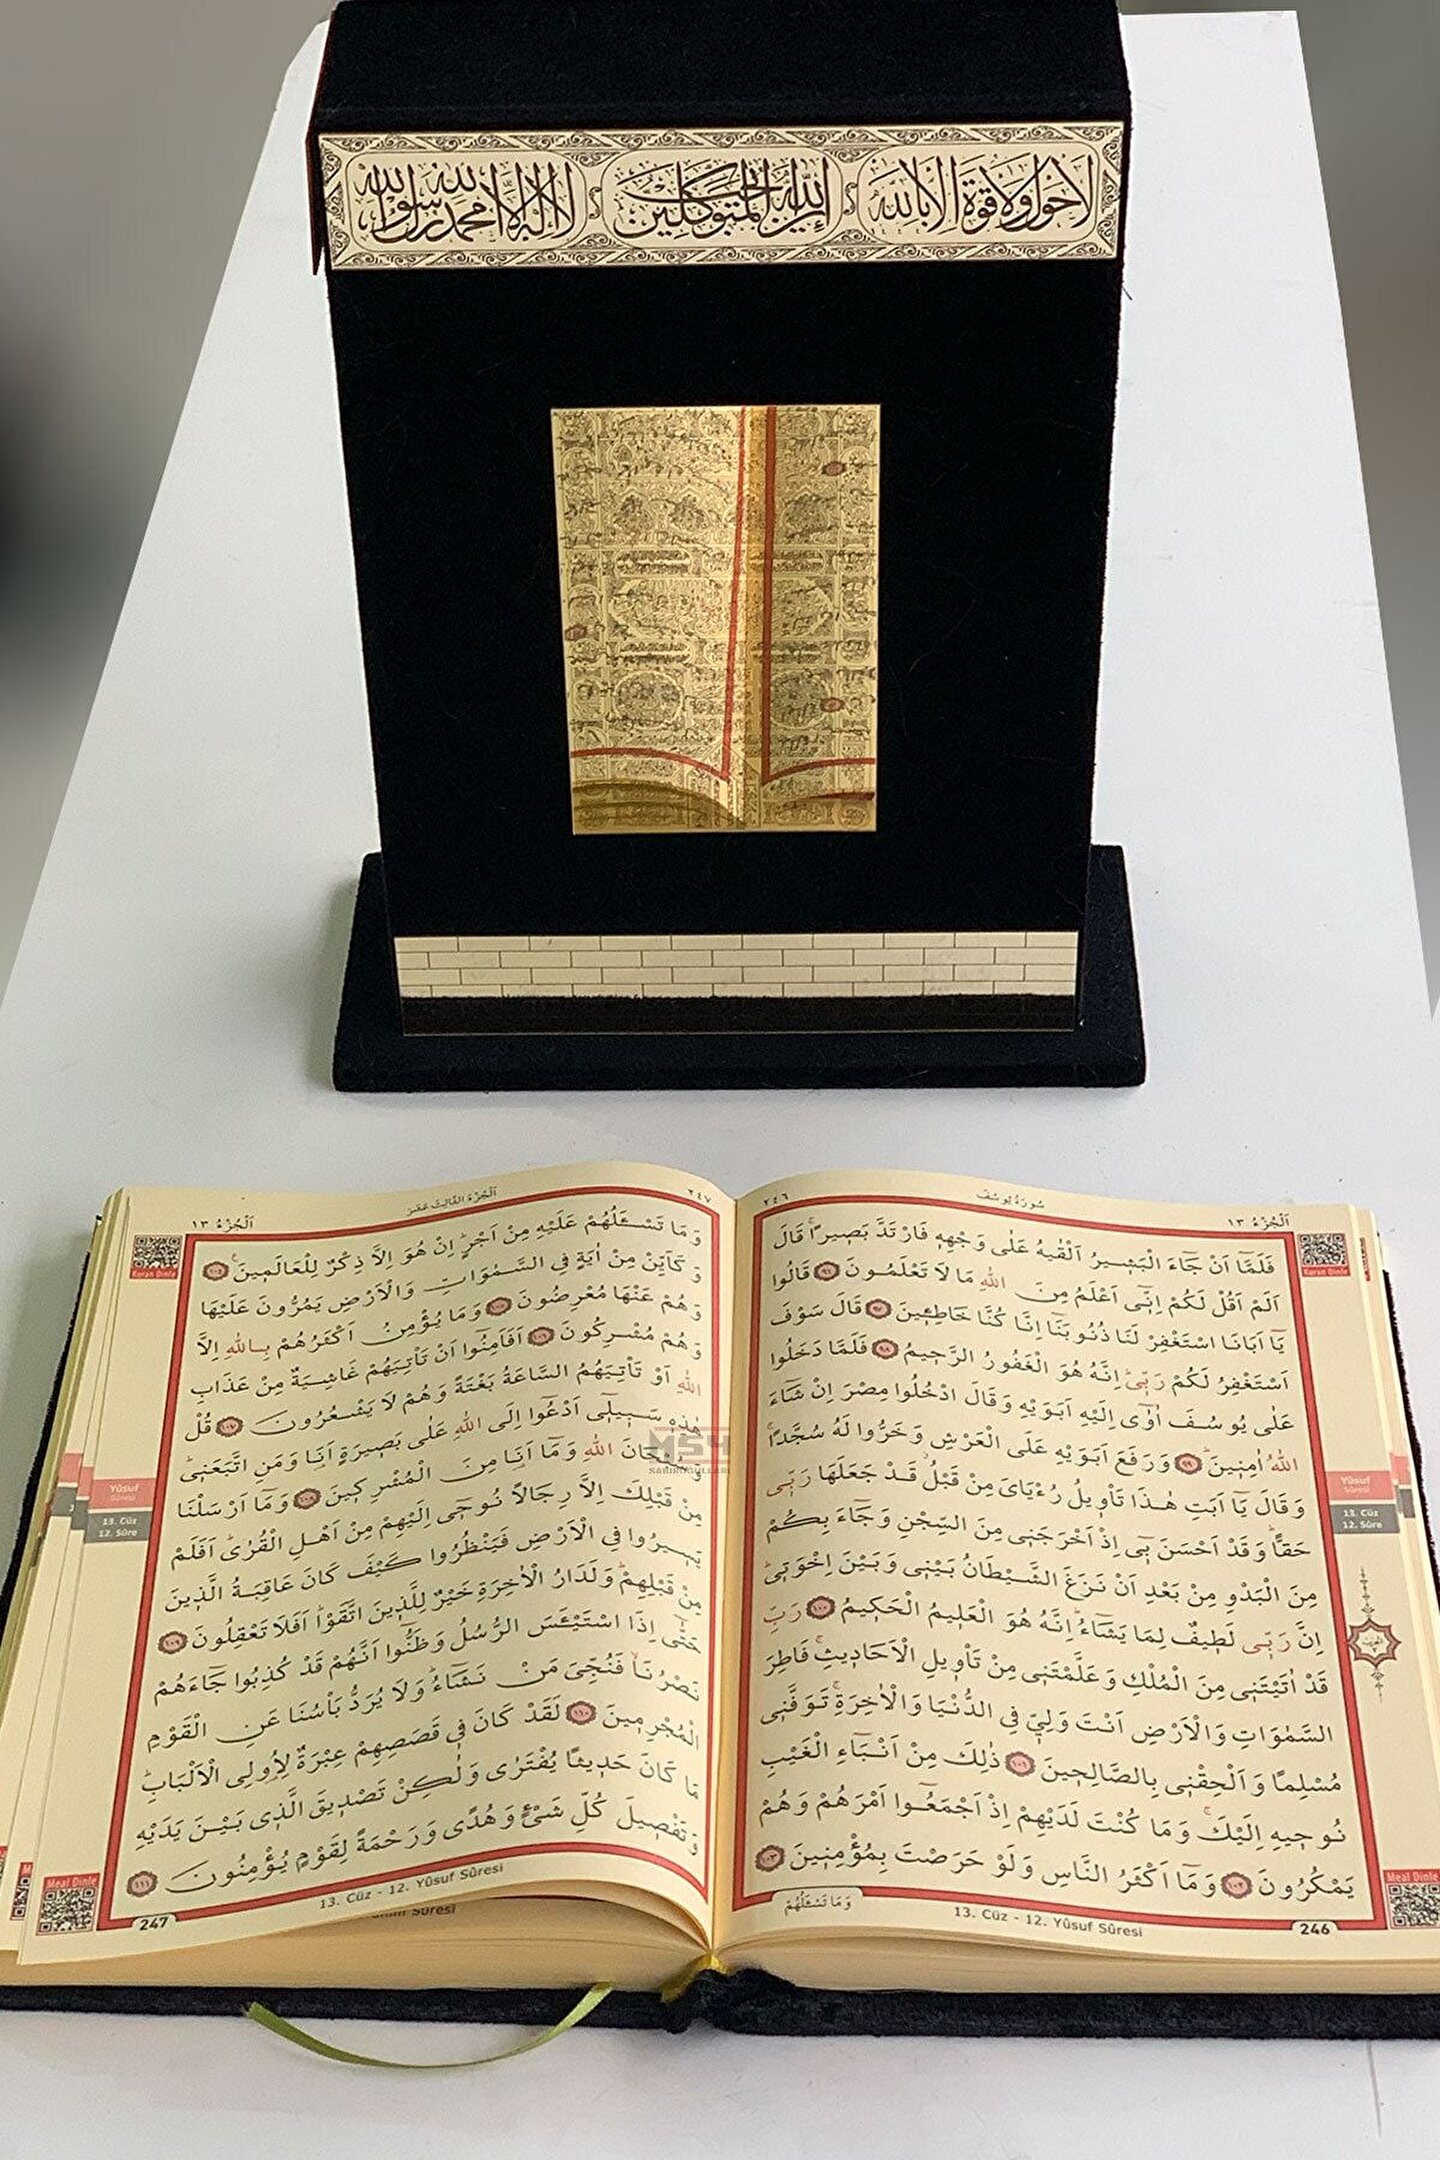 لَا حَوْلَ وَلَا قُوَّةَ اِلَّا بِاللّٰهِ
إِنَّ اللّٰهَ يُحِبُّ الْمُتَوَكِّلِينَ
لَا اِلٰهَ اِلَّا اللّٰهُ مُحَمَّدٌ رَسُولُ اللّٰهِ
اَلْجُزْءُ ١٣
سُورَةُ يُوسُفَ
٢٤٦
فَلَمَّٓا اَنْ جَٓاءَ الْبَش۪يرُ اَلْقٰيهُ عَلٰى وَجْهِه۪ فَارْتَدَّ بَص۪يراًۚ قَالَ
اَلَمْ اَقُلْ لَكُمْ اِنّ۪ٓي اَعْلَمُ مِنَ اللّٰهِ مَا لَا تَعْلَمُونَ ﴿٩٦﴾ قَالُوا
يَٓا اَبَانَا اسْتَغْفِرْ لَنَا ذُنُوبَنَٓا اِنَّا كُنَّا خَاطِـ۪ٔينَ ﴿٩٧﴾ قَالَ سَوْفَ
اَسْتَغْفِرُ لَكُمْ رَبّ۪يۜ اِنَّهُ هُوَ الْغَفُورُ الرَّح۪يمُ ﴿٩٨﴾ فَلَمَّا دَخَلُوا
عَلٰى يُوسُفَ اٰوٰٓى اِلَيْهِ اَبَوَيْهِ وَقَالَ ادْخُلُوا مِصْرَ اِنْ شَٓاءَ
اللّٰهُ اٰمِن۪ينَۜ ﴿٩٩﴾ وَرَفَعَ اَبَوَيْهِ عَلَى الْعَرْشِ وَخَرُّوا لَهُ سُجَّداًۚ
وَقَالَ يَٓا اَبَتِ هٰذَا تَأْو۪يلُ رُءْيَايَ مِنْ قَبْلُۘ قَدْ جَعَلَهَا رَبّ۪ي
حَقاًّۜ وَقَدْ اَحْسَنَ ب۪ٓي اِذْ اَخْرَجَن۪ي مِنَ السِّجْنِ وَجَٓاءَ بِكُمْ
مِنَ الْبَدْوِ مِنْ بَعْدِ اَنْ نَزَغَ الشَّيْطَانُ بَيْن۪ي وَبَيْنَ اِخْوَت۪يۜ
اِنَّ رَبّ۪ي لَط۪يفٌ لِمَا يَشَٓاءُۜ اِنَّهُ هُوَ الْعَل۪يمُ الْحَك۪يمُ ﴿١٠٠﴾ رَبِّ
قَدْ اٰتَيْتَن۪ي مِنَ الْمُلْكِ وَعَلَّمْتَن۪ي مِنْ تَأْو۪يلِ الْاَحَاد۪يثِۚ فَاطِرَ
السَّمٰوَاتِ وَالْاَرْضِ اَنْتَ وَلِيّ۪ فِي الدُّنْيَا وَالْاٰخِرَةِۚ تَوَفَّن۪ي
مُسْلِماً وَاَلْحِقْن۪ي بِالصَّالِح۪ينَ ﴿١٠١﴾ ذٰلِكَ مِنْ اَنْبَٓاءِ الْغَيْبِ
نُوح۪يهِ اِلَيْكَۚ وَمَا كُنْتَ لَدَيْهِمْ اِذْ اَجْمَعُٓوا اَمْرَهُمْ وَهُمْ
يَمْكُرُونَ ﴿١٠٢﴾ وَمَٓا اَكْثَرُ النَّاسِ وَلَوْ حَرَصْتَ بِمُؤْمِن۪ينَ ﴿١٠٣﴾
وَمَا تَسْـَٔلُهُمْ
13. Cüz - 12. Yûsuf Sûresi
246
Kuran Dinle
Yûsuf
Sûresi
13. Cüz
12. Sûre
Meal Dinle
٢٤٧
اَلْجُزْءُ الثَّالِثَ عَشَرَ
اَلْجُزْءُ ١٣
وَمَا تَسْـَٔلُهُمْ عَلَيْهِ مِنْ اَجْرٍۜ اِنْ هُوَ اِلَّا ذِكْرٌ لِلْعَالَم۪ينَ۟ ﴿١٠٤﴾
وَكَاَيِّنْ مِنْ اٰيَةٍ فِي السَّمٰوَاتِ وَالْاَرْضِ يَمُرُّونَ عَلَيْهَا
وَهُمْ عَنْهَا مُعْرِضُونَ ﴿١٠٥﴾ وَمَا يُؤْمِنُ اَكْثَرُهُمْ بِاللّٰهِ اِلَّا
وَهُمْ مُشْرِكُونَ ﴿١٠٦﴾ اَفَاَمِنُٓوا اَنْ تَأْتِيَهُمْ غَاشِيَةٌ مِنْ عَذَابِ
اللّٰهِ اَوْ تَأْتِيَهُمُ السَّاعَةُ بَغْتَةً وَهُمْ لَا يَشْعُرُونَ ﴿١٠٧﴾ قُلْ
هٰذِه۪ سَب۪يل۪ٓي اَدْعُٓوا اِلَى اللّٰهِ عَلٰى بَص۪يرَةٍ اَنَا۬ وَمَنِ اتَّبَعَن۪يۜ
وَسُبْحَانَ اللّٰهِ وَمَٓا اَنَا۬ مِنَ الْمُشْرِك۪ينَ ﴿١٠٨﴾ وَمَٓا اَرْسَلْنَا
مِنْ قَبْلِكَ اِلَّا رِجَالاً نُوح۪ٓي اِلَيْهِمْ مِنْ اَهْلِ الْقُرٰىۜ اَفَلَمْ
يَس۪يرُوا فِي الْاَرْضِ فَيَنْظُرُوا كَيْفَ كَانَ عَاقِبَةُ الَّذ۪ينَ
مِنْ قَبْلِهِمْۜ وَلَدَارُ الْاٰخِرَةِ خَيْرٌ لِلَّذ۪ينَ اتَّقَوْاۜ اَفَلَا تَعْقِلُونَ ﴿١٠٩﴾
حَتّٰٓى اِذَا اسْتَيْـَٔسَ الرُّسُلُ وَظَنُّٓوا اَنَّهُمْ قَدْ كُذِبُوا جَٓاءَهُمْ
نَصْرُنَاۙ فَنُجِّيَ مَنْ نَشَٓاءُۜ وَلَا يُرَدُّ بَأْسُنَا عَنِ الْقَوْمِ
الْمُجْرِم۪ينَ ﴿١١٠﴾ لَقَدْ كَانَ ف۪ي قَصَصِهِمْ عِبْرَةٌ لِاُو۬لِي الْاَلْبَابِۜ
مَا كَانَ حَد۪يثاً يُفْتَرٰى وَلٰكِنْ تَصْد۪يقَ الَّذ۪ي بَيْنَ يَدَيْهِ
وَتَفْص۪يلَ كُلِّ شَيْءٍ وَهُدًى وَرَحْمَةً لِقَوْمٍ يُؤْمِنُونَ ﴿١١١﴾
13. Cüz - 12. Yûsuf Sûresi
247
Kuran Dinle
Yûsuf
Sûresi
13. Cüz
12. Sûre
Meal Dinle
Sûresi